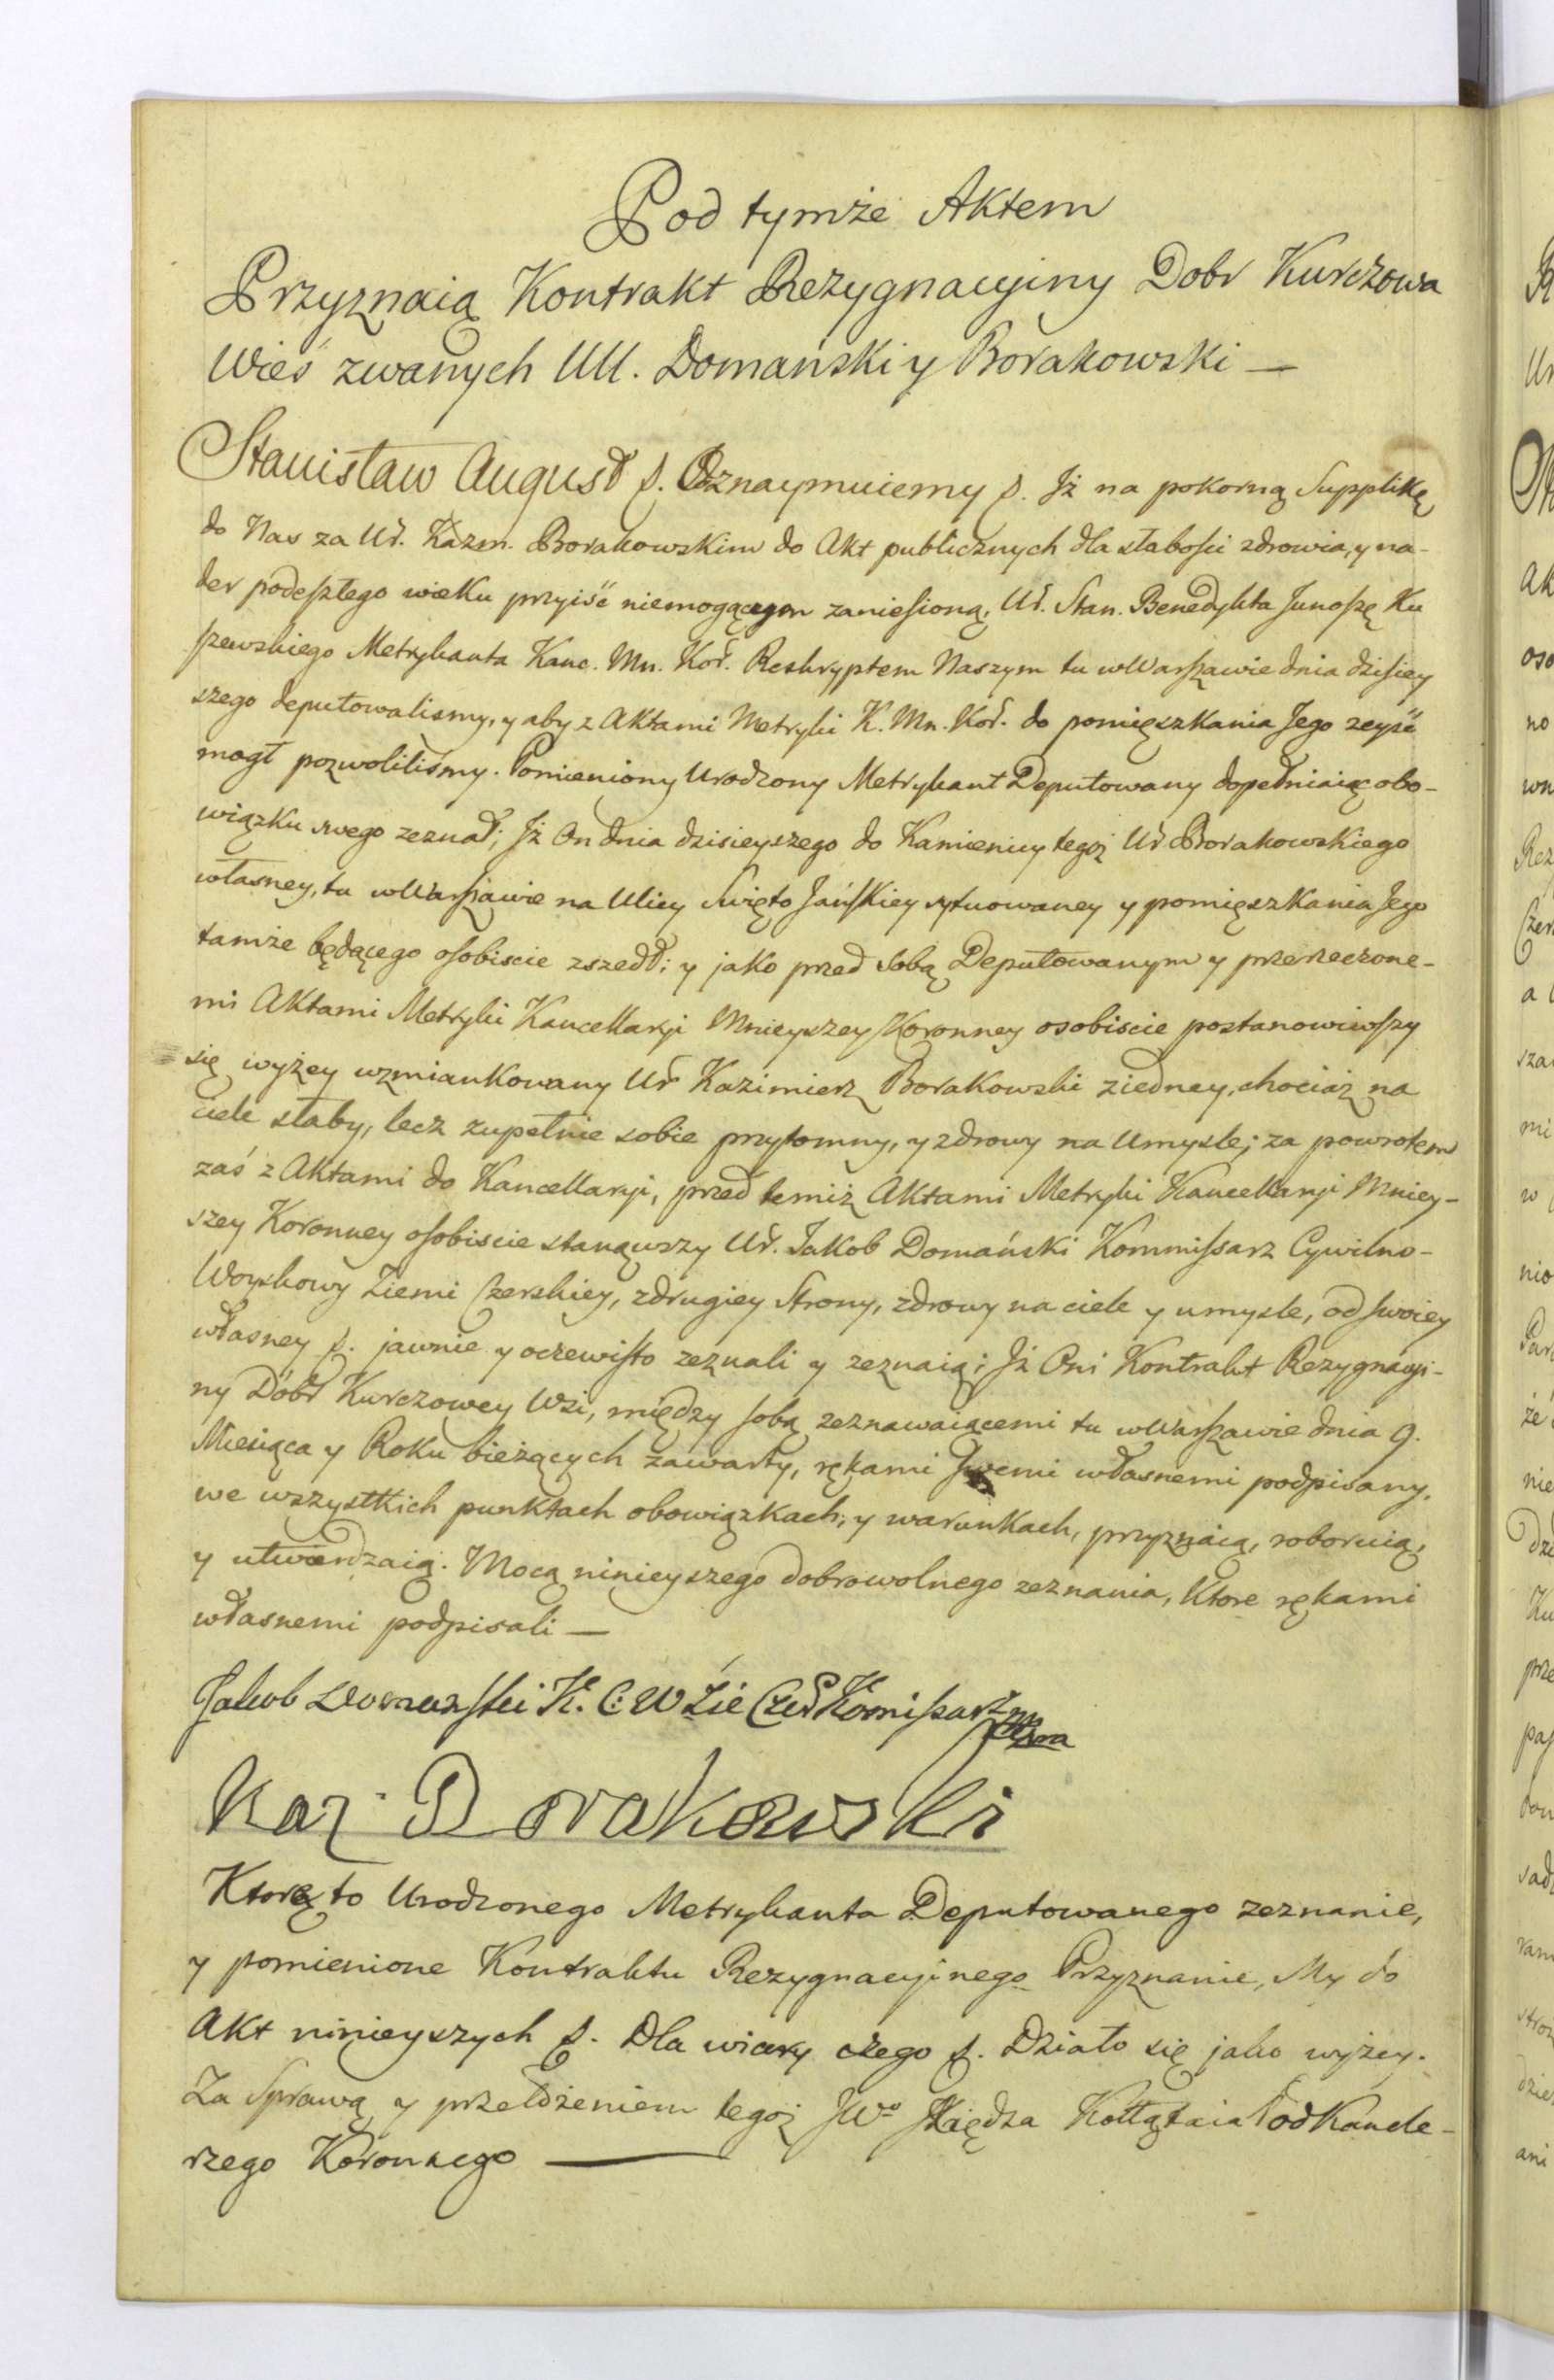 Pod tymże Aktem
Przyznaią Kontrakt Rezygnacyiny Dobr Kurczowa
Wieś zwanych UU. Domański y Borakowski —
Stanisław August f. Oznaymuiemy f. Jż na pokorną Supplikę
do Nas za Ur. Kazm. Borakowskim do Akt publicznych dla słabości zdrowia, y na-
der podeszłego wieku przyiść niemogącym zaniesioną, Ur. Stan. Benedykta Junoszę Ku
szewskiego Metrykanta Kanc. Mn. Kor. Reskryptem Naszym tu w Warszawie dnia dzisiey
szego deputowalismy, y aby z Aktami Metryki K. Mn. Kor. do pomięszkania Jego zeyść
mogł pozwolilismy. Pomieniony Urodzony Metrykant Deputowany dopełniaiąc obo-
wiązku swego zeznał; Jż On dnia dzisieyszego do Kamienicy tegoż Ur Borakowskiego
własney, tu w Warszawie na Ulicy Swięto Jańskiey sytuowaney y pomięszkania Jego
tamże będącego osobiscie zszedł; y jako przed sobą Deputowanym y przerzeczone-
mi Aktami Metryki Kancellaryi Mnieyszey Koronney osobiscie postanowiwszy
się wyżey wzmiankowany Ur Kazimierz Borakowski ziedney, chociaż na
ciele słaby, lecz zupełnie sobie przytomny, y zdrowy na Umysle; za powrotem
zaś z Aktami do Kancellaryi, przed temiż Aktami Metryki Kancellaryi Mniey-
szey Koronney osobiscie stanąwszy Ur. Jakob Domański Kommissarz Cywilno-
Woyskowy Ziemi Czerskiey, zdrugiey Strony, zdrowy na ciele y umysle, od swoiey
własney f. jawnie y oczewisto zeznali y zeznaią; Jż Oni Kontrakt Rezygnacyi-
ny Dóbr Kurczowey Wsi, między sobą zeznawaiącemi tu w Warszawie dnia 9.
Miesiąca y Roku bieżących zawarty, rękami swemi własnemi podpisany,
we wszystkich punktach obowiązkach, y warunkach, przyznaią, roboruią,
y utwierdzaią. Mocą ninieyszego dobrowolnego zeznania, Ktore rękami
własnemi podpisali —
Jakob Domanski K. C. W Zie Czer Komissarz
Kaz. Borakowski
Ktore to Urodzonego Metrykanta Deputowanego zeznanie,
y pomienione Kontraktu Rezygnacyinego Przyznanie, My do
Akt ninieyszych f. Dla wiary czego f. Działo się jako wyżey.
Za Sprawą y przełożeniem tegoż JWo Xiędza Kołłątaia Podkancle-
rzego Koronnego —